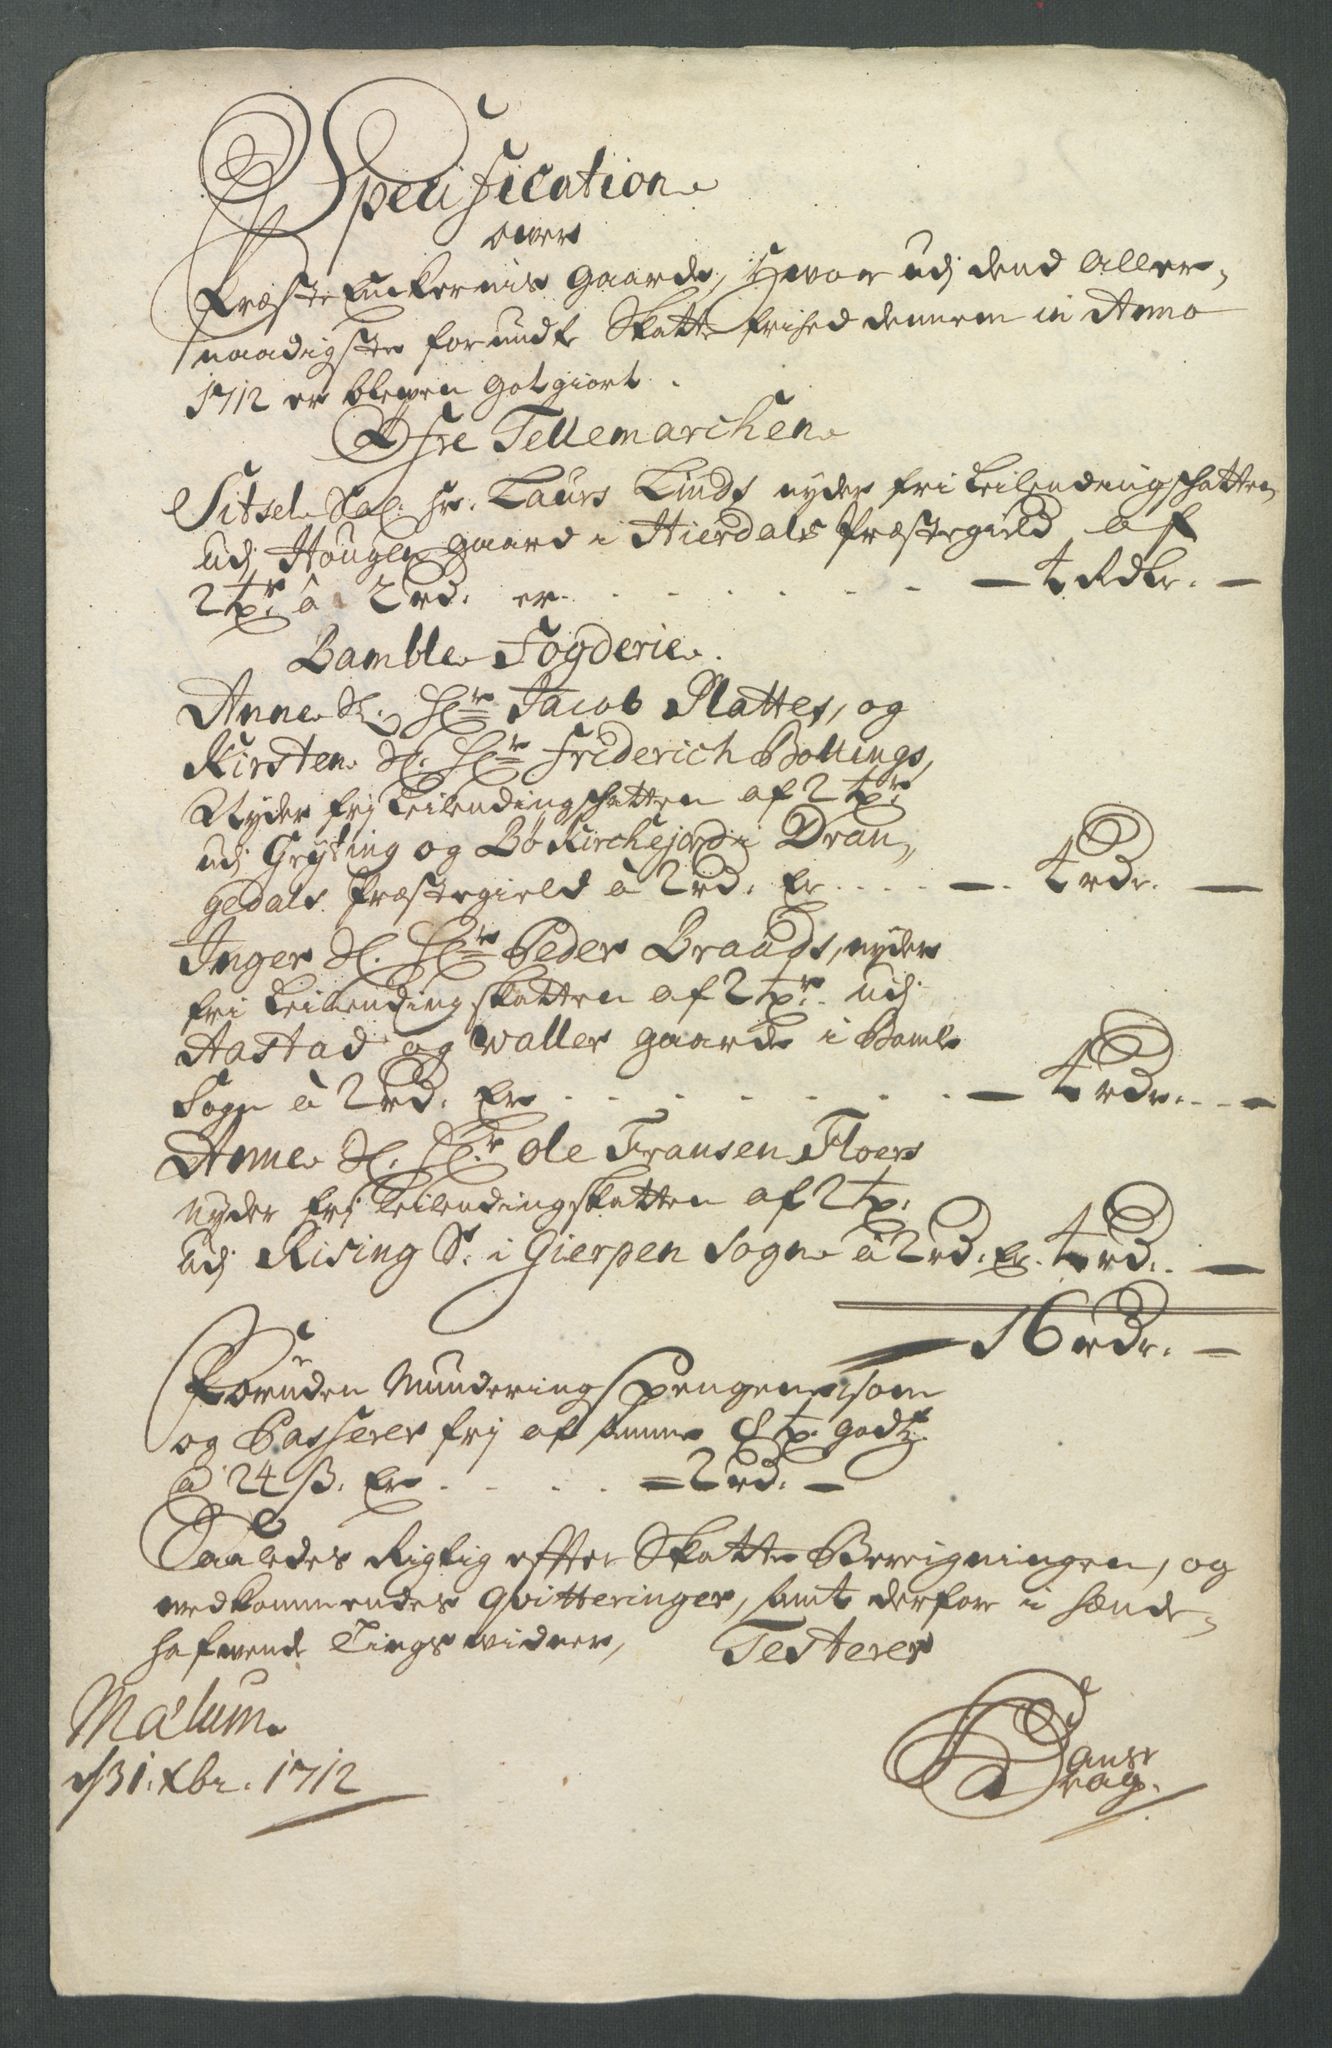 Specification
over
Præste Enckernis Gaarde, Hvor udj dend Aller„
naadigste forundte Skatte frihed dennem in Anno
1712 er blewen Gotgiort.
Øfre Tellemarchen
Sitsel Sal. Hr. Laurs Linds nyder fri Leilendingschatten
udj Hougen gaard i Hierdals Præstegield af
2 tpr. â 2 rd. er . . . . . . — 4 Rdlr. —
Bamble Fogderie.
Anne Sl. Hr. Jacob Plattes, og
Kirsten Sl. Hr. Friderich Bollings,
Nyder frj Leilendingschatten af 2 tpr.
udj Grÿting og Bø Kirchejord i Dran„
gedals Præstegield â 2 rd. Er . . . . — 4 rdr. —
Inger Sl. Hr. Peder Braads, nyder
fri Leilendingskatten af 2 tpr. udj
Aastad og Waller gaarde i Bamle
Sogn â 2 rd. Er . . . . . . . — 4 rdr. . . —
Anne Sl. Hr. Ole Fransen Floers
nyder frj Leilendingskatten af 2 tp.
udj Rising S. i Gierpen Sogn â 2 rd. Er. 4 rd. . —
— 16 rdr. —
Foruden Munderings Pengene, som
og Passerer frj af samme 8 tp. godtz
â 24 ß. Er . . . . = 2 rd. —
Saaledes Rigtig effter Skatte Beregningen, og
vedkommendes Qvitteringer, samt derfor i hænde„
hafvende Tings widner, Testerer
Mælum
d 31. Xbr. 1712
Hans
Drag.